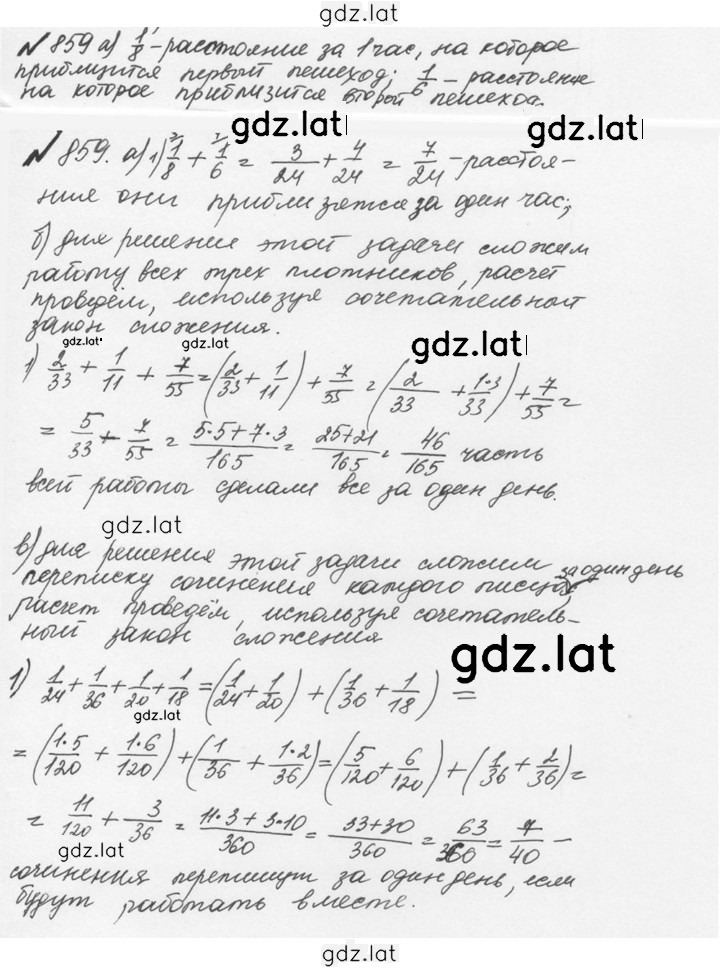 gdz.lat
№ 859 а) 1/8 - расстояние за 1 час, на которое
приблизится первый пешеход; 1/6 - расстояние
на которое приблизится второй пешеход.
gdz.lat
№ 859. а) 1) 1/8 + 1/6 = 3/24 + 4/24 = 7/24 - расстоя-
ние они приблизятся за один час;
б) для решения этой задачи сложим
работу всех трех плотников, расчет
проведём, используя сочетательный
закон сложения.
gdz.lat gdz.lat gdz.lat
1) 2/33 + 1/11 + 7/55 = (2/33 + 1/11) + 7/55 = (2/33 + 1·3/33) + 7/55 =
= 5/33 + 7/55 = 5·5+7·3/165 = 25+21/165 = 46/165 часть
всей работы сделали все за один день.
gdz.lat
в) для решения этой задачи сложим
переписку сочинения каждого писца за один день,
расчет проведём, используя сочетатель-
ный закон сложения
gdz.lat
1) 1/24 + 1/36 + 1/20 + 1/18 = (1/24 + 1/20) + (1/36 + 1/18) =
gdz.lat
= (1·5/120 + 1·6/120) + (1/36 + 1·2/36) = (5/120 + 6/120) + (1/36 + 2/36) =
= 11/120 + 3/36 = 11·3+3·10/360 = 33+30/360 = 63/360 = 7/40 -
gdz.lat
сочинения перепишут за один день, если
будут работать вместе.
gdz.lat